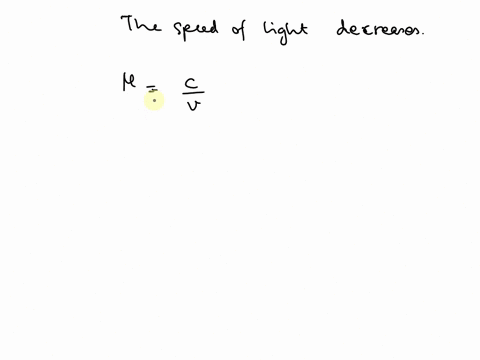 The speed of light decreases.
μ = c/v